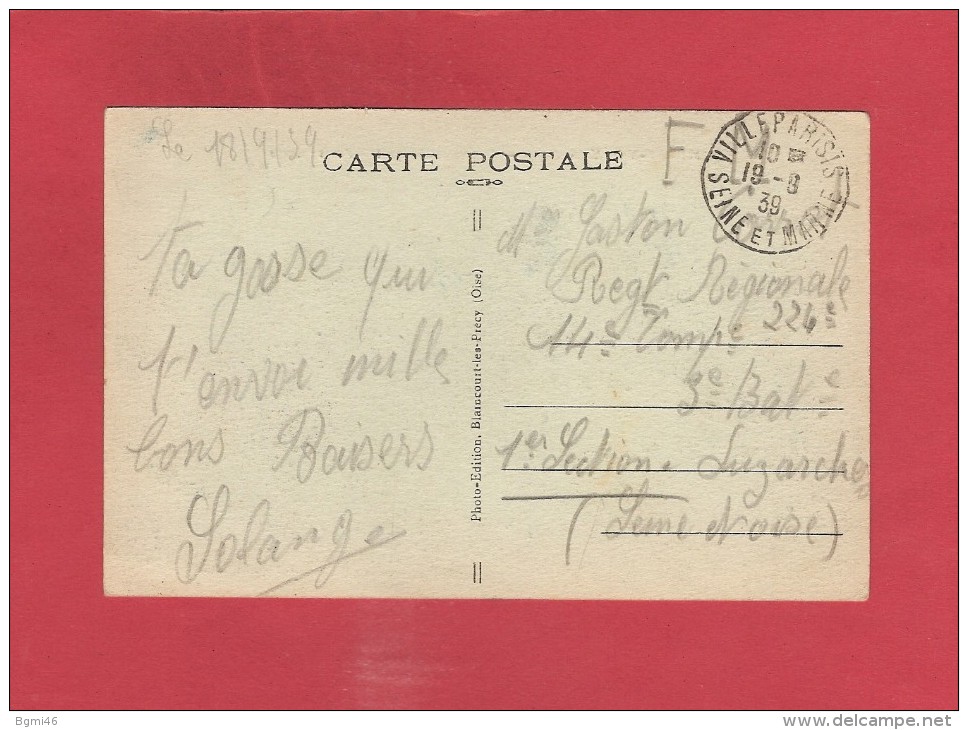 Le 18/9/39
CARTE POSTALE
F M
VILLEPARISIS
10
19 - 9
39
SEINE ET MARNE
ta grose qui
t'envoi mille
bons Baisers
Solange
Photo-Edition, Blaincourt-les-Précy (Oise)
Mr Gaston
Regt Régionale
224e
14e Compe
3e Bat e
1er Section Luzarches
(Seine et oise)
Bgmi46
www.delcampe.net